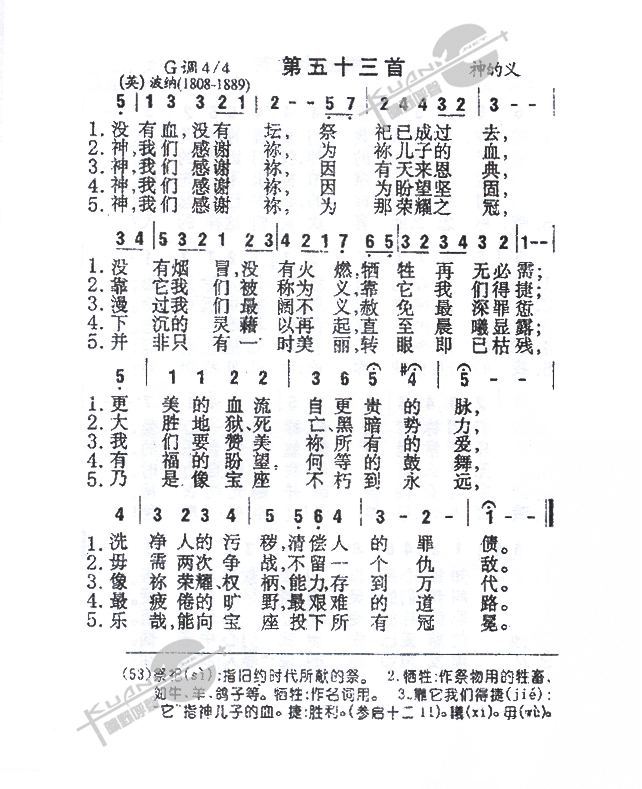 G调4/4 第五十三首 神的义
(英)波纳(1808-1889)
5 | 1 3 3 2 1 | 2 - - 5 7 | 2 4 4 3 2 | 3 - -
1.没有血,没有坛,祭祀已成过去,
2.神,我们感谢祢,为祢儿子的血,
3.神,我们感谢祢,因有天来恩典,
4.神,我们感谢祢,因为盼望坚固,
5.神,我们感谢祢,为那荣耀之冠,
3 4 | 5 3 2 1 2 3 | 4 2 1 7 6 5 | 3 2 2 4 3 2 | 1 - -
1.没有烟冒,没有火燃,牺牲再无必需;
2.靠它我们被称为义,靠它我们得捷;
3.漫过我们最阔不义,赦免最深罪愆;
4.下沉的灵藉以再起,直至晨曦显露;
5.并非只有一时美丽,转眼即已枯残,
5 | 1 1 2 2 | 3 6 5 #4 | 5 - -
1.更美的血流自更贵的脉,
2.大胜地狱、死亡、黑暗势力,
3.我们要赞美祢所有的爱,
4.有福的盼望,何等的鼓舞,
5.乃是像宝座不朽到永远,
4 | 3 2 3 4 | 5 5 5 6 4 | 3 - 2 - | 1 -
1.洗净人的污秽,清偿人的罪债。
2.毋需两次争战,不留一个仇敌。
3.像祢荣耀、权柄、能力,存到万代。
4.最疲倦的旷野,最艰难的道路。
5.乐哉,能向宝座投下所有冠冕。
(53)祭祀(sì):指旧约时代所献的祭。 2.牺牲:作祭物用的牲畜,
如牛、羊、鸽子等。牺牲:作名词用。 3.靠它我们得捷(jié):
“它”指神儿子的血。捷:胜利。(参启十二11)。曦(xi)。毋(wù)。